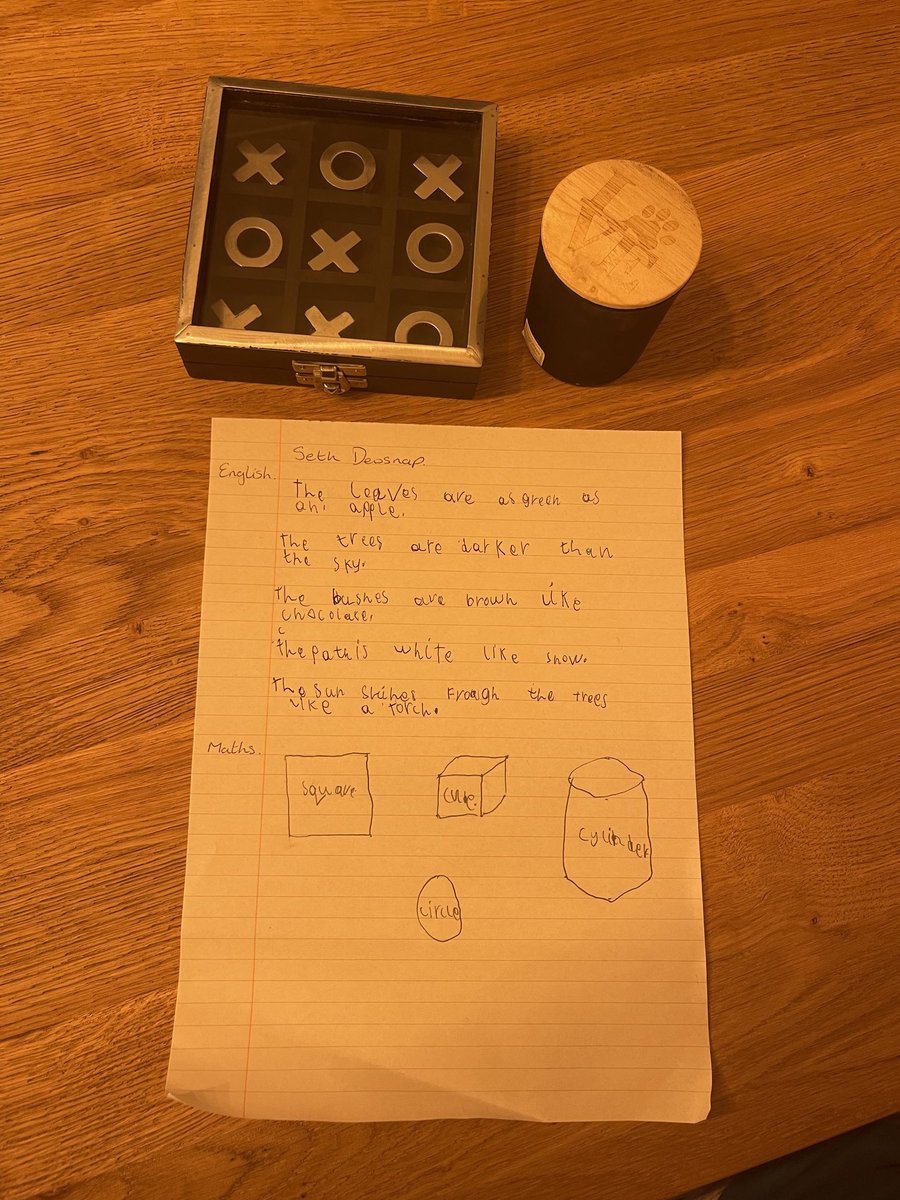 Seth Deosnap.
English.
The leaves are as green as
an apple.
the trees are darker than
the sky.
the bushes are brown like
chocolate.
the path is white like snow.
The sun shines Frough the trees
like a torch.
Maths.
square
cube
cylinder
circle